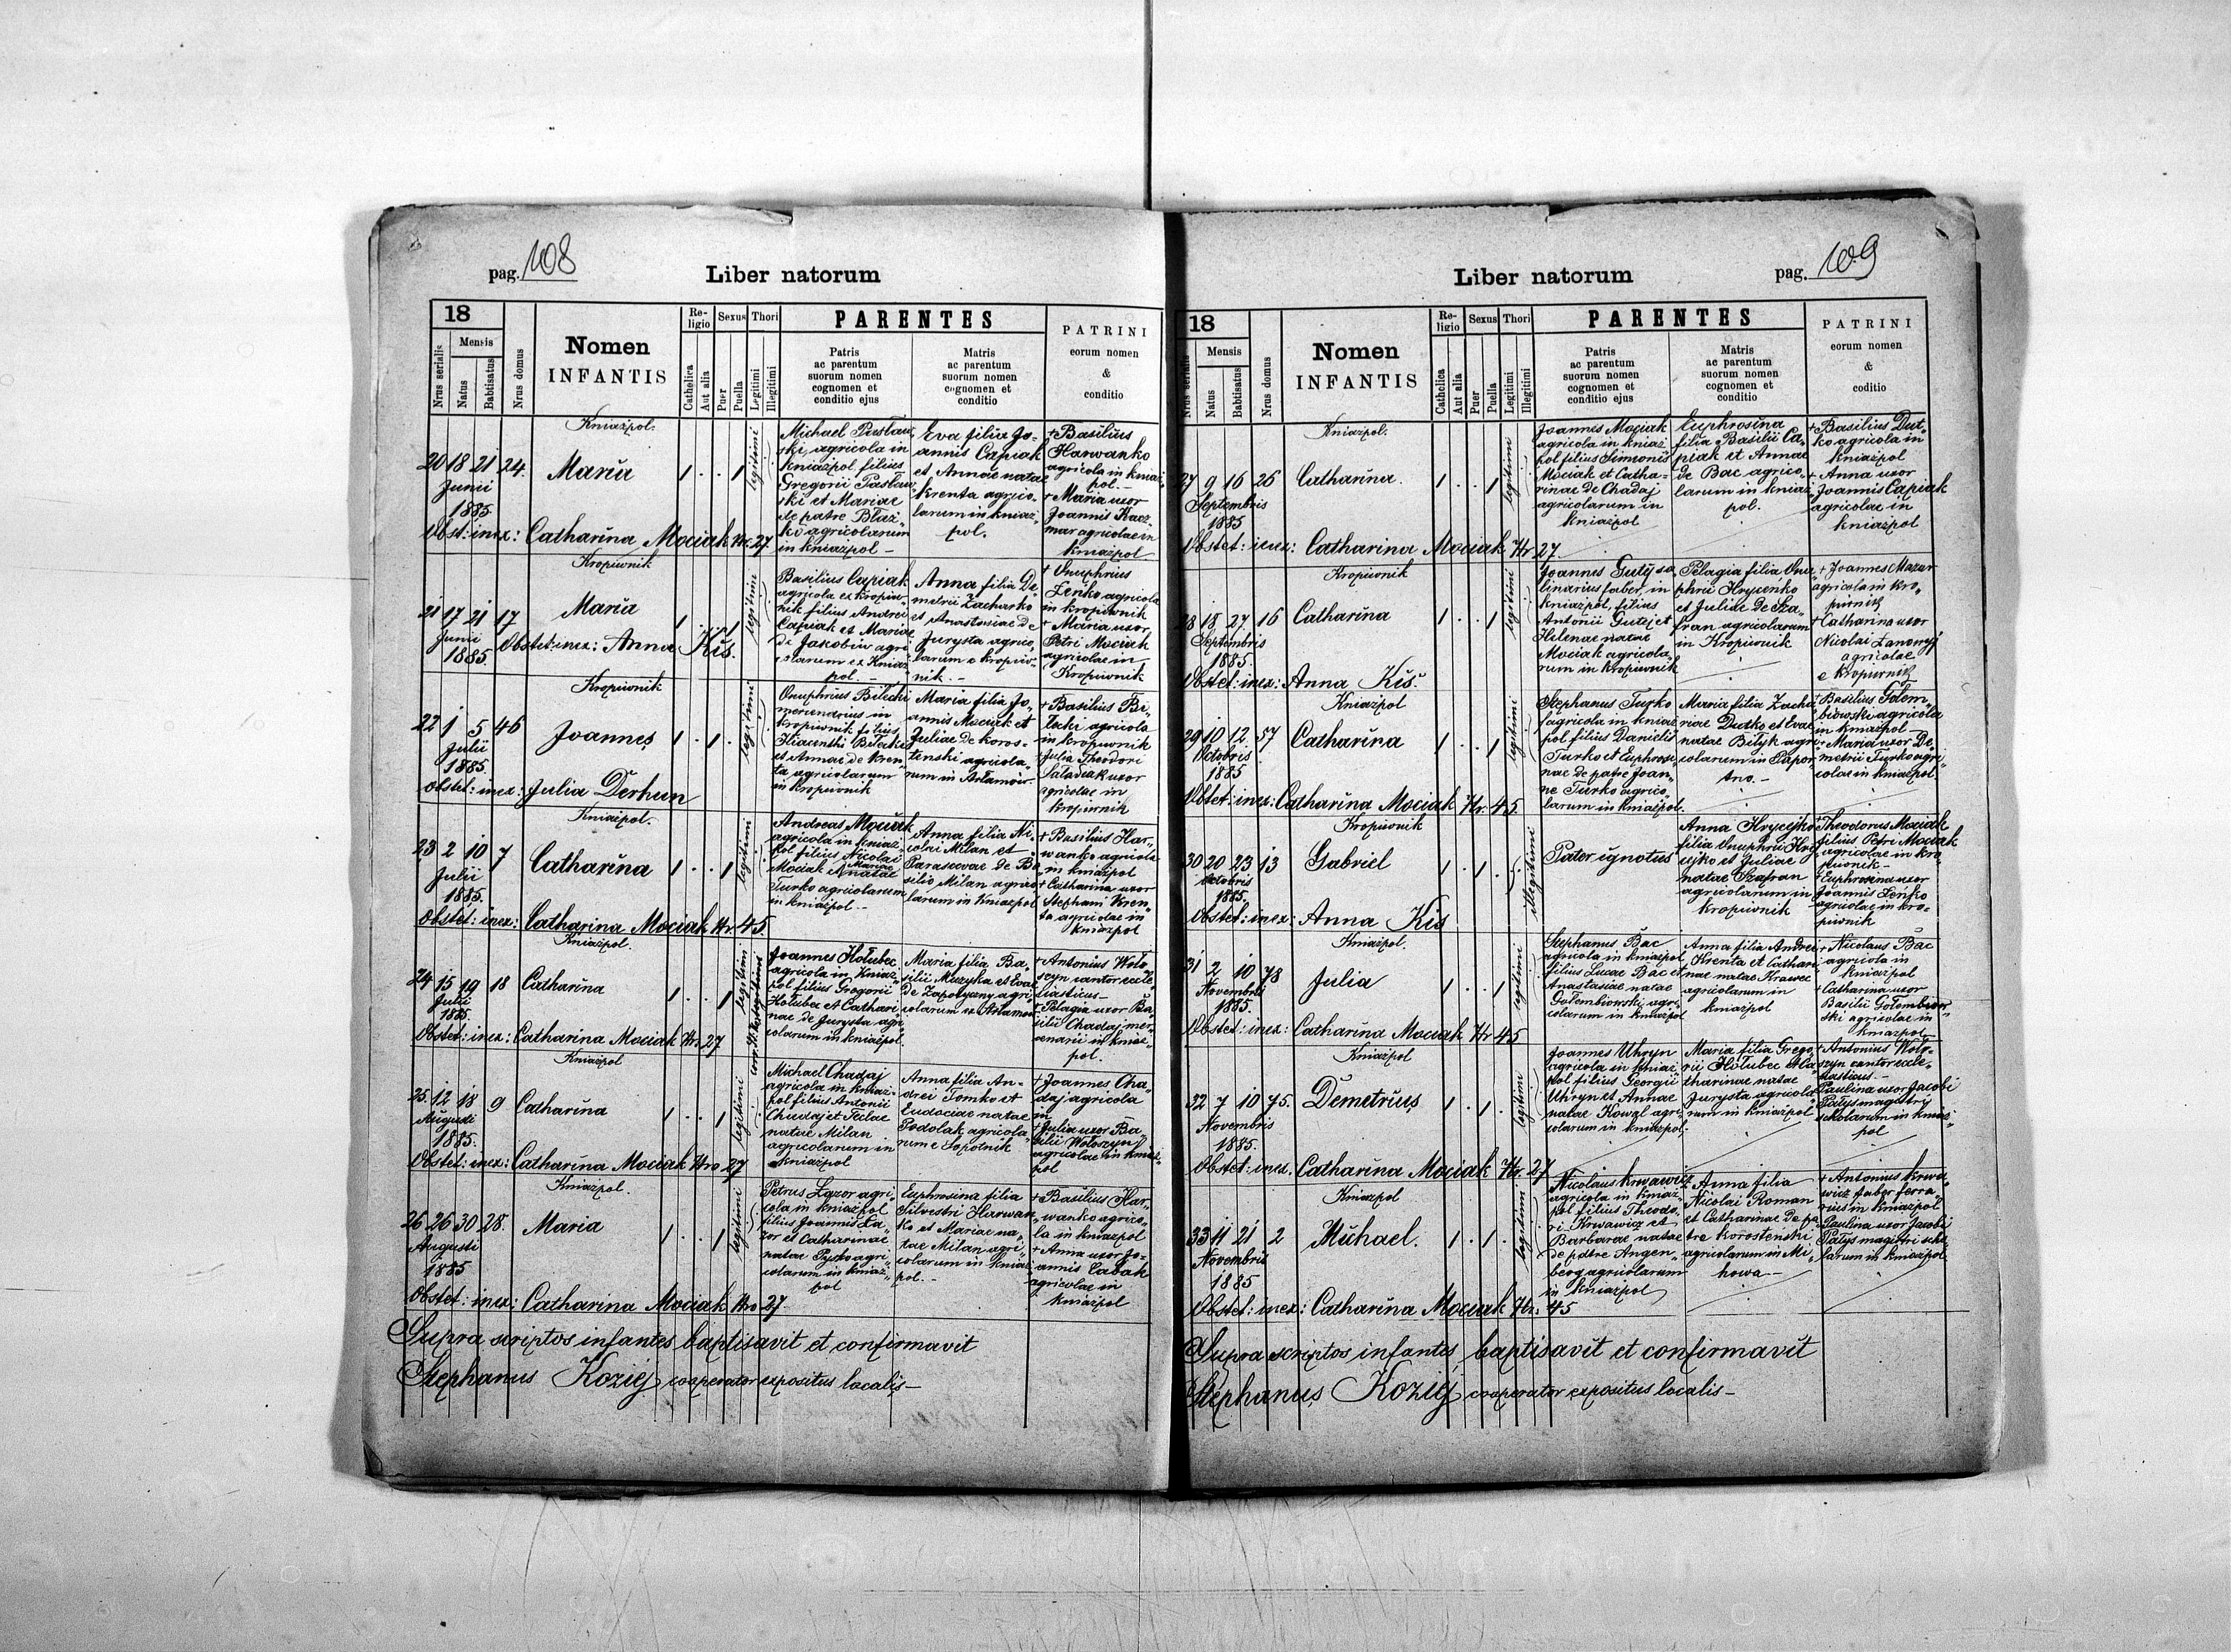 pag. 108
Liber natorum
18
Mensis
Nrus serialis
Natus
Babtisatus
Nrus domus
Nomen
INFANTIS
Re-
ligio
Catholica
Aut alia
Sexus
Puer
Puella
Thori
Legitimi
Illegitimi
PARENTES
Patris
ac parentum
suorum nomen
cognomen et
conditio ejus
Matris
ac parentum
suorum nomen
cognomen et
conditio
PATRINI
eorum nomen
&
conditio
Kniaźpol.
20 18 21 24. Maria 1 . . 1 legitimi
Junii
1885.
Michael
ski, agricola in
kniaźpol filius
Gregorii
ski et Mariae
de patre Błaż„
ko agricolarum
in kniaźpol –
Eva filia Jo-
annis Capiak
et Annae natae
Krenta agrico„
larum in kniaź„
pol.
+ Basilius
Harwanko
agricola in kniaź„
pol. –
+ Maria uxor
Joannis Kacz„
mar agricolae in
kniaźpol
Obst: inex: Catharina Mociak Nr. 27.
Kropiwnik
21 17 21 17 Maria 1 . . 1 legitimi
Junii
1885.
Basilius Capiak
agricola ex Kropiw„
nik filius Andrei
Capiak et Mariae
de Jakobiw agri
colarum ex Kniaź
pol. –
Anna filia De„
metrii Zacharko
et Anastasiae de
Jurysta agrico„
larum e kropiw„
nik. –
+ Onuphrius
Zeńko agricola
in kropiwnik
+ Maria uxor
Petri Mociak
agricolae in
Kropiwnik
Obstet: inex: Anna Kiś.
Kropiwnik
22 1 5 46 Joannes 1 . 1 . legitimi
Julii
1885.
Onuphrius Bilecki
mercenarius in
kropiwnik filius
Hiacenthi Bilecki
et Annae de Kren„
ta agricolarum
in kropiwnik
Maria filia Jo„
annis Mociak et
Juliae de koros„
tenski agricola„
rum in Arłamów
+ Basilius Bi„
lecki agricola
in kropiwnik
+ Julia Theodori
uxor
agricolae in
kropiwnik
Obstet: inex: Julia Derhun
Kniaźpol.
23 2 10 7 Catharina 1 . . 1 legitimi
Julii
1885.
Andreas Mociak
agricola in kniaź„
pol filius Nicolai
Mociak et Mariae natae
Turko agricolarum
in kniaźpol –
Anna filia Ni„
colai Milan et
Parascevae de Ba
silio Milan agrico
larum in Kniaźpol
+ Basilius Har„
wanko agricola
in kniaźpol
+ Catharina uxor
Stephani Kren„
ta agricolae in
kniaźpol
Obstet: inex: Catharina Mociak Nr 45.
Kniaźpol.
24 15 19 18 Catharina 1 . . 1 legitimi
Julii
1885.
Joannes Hołubec
agricola in Kniaź„
pol filius Gregorii
Hołubec et Cathari
nae de Jurysta agri
colarum in kniaźpol.
Maria filia Ba„
silii Muzyka et Evae
de Zapotyczny agri„
colarum ex Arłamow
+ Antonius Woło„
szyn cantor eccle
siasticus –
+ Pelagia uxor Ba
silii Chadaj mer„
cenarii in kniaź„
pol.
Obstet: inex: Catharina Mociak Nro 27
Kniaźpol
25 12 18 9 Catharina 1 . . 1 legitimi
Augusti
1885.
Michael Chadaj
agricola in kniaź„
pol filius Antonii
Chadaj et Teclae
natae Milan
agricolarum in
kniaźpol
Anna filia An„
drei Tomko et
Eudociae natae
Podolak agricola„
rum e Sopotnik
+ Joannes Cha„
daj agricola
in
+ Julia uxor Ba„
silii Wołoszyn
agricolae in kniaź„
pol
Obstet: inex: Catharina Mociak Nro 27
Kniaźpol.
26 26 30 28. Maria 1 . . 1 legitimi
Augusti
1885
Petrus Łazor agri„
cola in kniaźpol
filius Joannis Ła„
zor et Catharinae
natae Pyćko agri„
colarum in kniaź„
pol
Euphrosina filia
Silvestri Harwan„
ko et Mariae na„
tae Milan agri„
colarum in kniaź
pol. –
+ Basilius Har„
wanko agrico„
la in kniaźpol
+ Anna uxor Jo„
annis Cabak
agricolae in
kniaźpol
Obstet: inex: Catharina Mociak Nro 27.
Supra scriptos infantes baptisavit et confirmavit
Stephanus Koziej cooperator expositus localis –
Liber natorum
pag. 109
18
Mensis
Nrus serialis
Natus
Babtisatus
Nrus domus
Nomen
INFANTIS
Re-
ligio
Catholica
Aut alia
Sexus
Puer
Puella
Thori
Legitimi
Illegitimi
PARENTES
Patris
ac parentum
suorum nomen
cognomen et
conditio ejus
Matris
ac parentum
suorum nomen
cognomen et
conditio
PATRINI
eorum nomen
&
coditio
Kniaźpol.
27 9 16 26 Catharina. 1 . . 1 legitimi
Septembris
1885
Joannes Mociak
agricola in kniaź
pol filius Simeonis
Mociak et Catha„
rinae de Chadaj
agricolarum in
kniaźpol
Euphrosina
filia Basilii Ca„
piak et Annae
de Bac agrico„
larum in kniaź
pol.
+ Basilius Dut„
ko agricola in
kniaźpol
+ Anna uxor
Joannis Capiak
agricolae in
kniaźpol
Obstet: inex: Catharina Mociak Nr 27.
Kropiwnik
28 18 27 16 Catharina 1 . . 1 legitimi
Septembris
1885.
Joannes Gutyj sa
linarius faber in
kniaźpol, filius
Antonii Gutej et
Helenae natae
Mociak agricola„
rum in kropiwnik
Pelagia filia Onu„
phrii Hrycenko
et Juliae de Sza„
fran agricolarum
in Kropiwnik
+ Joannes Mazur
agricola in kro„
piwnik
+ Catharina uxor
Nicolai
agricolae
e kropiwnik
Obstet: inex: Anna Kiś.
Kniaźpol
29 10 12 57 Catharina 1 . . 1 legitimi
Octobris
1885
Stephanus Turko
agricola in kniaź
pol filius Danielis
Turko et Euphrosi
nae de patre Joan„
ne Turko agrico„
larum in kniaźpol.
Maria filia Zacha
riae Dutko et Evae
natae Bilyk agri„
colarum in Papor
tno. –
+ Basilius Gołem„
biowski agricola
in kniaźpol –
+ Maria uxor De„
metrii Turko agri„
colae in kniaźpol.
Obstet: inex: Catharina Mociak Nr. 45.
Kropiwnik
30 20 23 13 Gabriel 1 . 1 . illegitimi
Octobris
1885.
Pater ignotus
Anna Hrycejko
filia Onuphrii Hry
cejko et Juliae
natae Szafran
agricolarum in
kropiwnik
+ Theodorus Mociak
filius Petri Mociak
agricolae in kro
piwnik –
+ Euphrosina uxor
Joannis Zeńko
agricolae in kro„
piwnik
Obstet: inex: Anna Kis
Kniaźpol.
31 2 10 78 Julia 1 . . 1 legitimi
Novembris
1885.
Stephanus Bac
agricola in kniaźpol
filius Lucae Bac et
Anastasiae natae
Gołembiowski agri„
colarum in kniaźpol
Anna filia Andrei
Krenta et Cathari
nae natae Krawec
agricolarum in
kniaźpol
+ Nicolaus Bac
agricola in
kniaźpol
+ Catharina uxor
Basilii Gołembiow„
ski agricolae in
kniaźpol –
Obstet: inex: Catharina Mociak Nr 45
Kniaźpol
32 7 10 75. Demetrius 1 . 1 . legitimi
Novembris
1885.
Joannes Uhryn
agricola in kniaź„
pol filius Georgii
Uhryn et Annae
natae Kowal agri„
colarum in kniaźpol.
Maria filia Grego„
rii Hołubec et Ca
tharinae natae
Jurysta agricola
rum in kniaźpol
+ Antonius Woło„
szyn cantor eccle„
siasticus –
Paulina uxor Jacobi
Patys magistri
scholarum in kniaź„
pol
Obstet: inex. Catharina Mociak Nr. 27
Kniaźpol
33 11 21 2 Michael. 1 . 1 . legitimi
Novembris
1885
Nicolaus Krwawicz
agricola in kniaź„
pol filius Theodo„
ri Krwawicz et
Barbarae natae
de patre Angen„
berg agricolarum
in kniaźpol
Anna filia
Nicolai Roman
et Catharinae de pa„
tre Korostenski
agricolarum in Mi„
howa –
+ Antonius Krwa„
wicz faber ferra„
rius in kniaźpol
Paulina uxor Jacobi
Patys magistri scho
larum in kniaźpol
Obstet: inex: Catharina Mociak Nr. 45
Supra scriptos infantes baptisavit et confirmavit
Stephanus Koziej cooperator expositus localis –